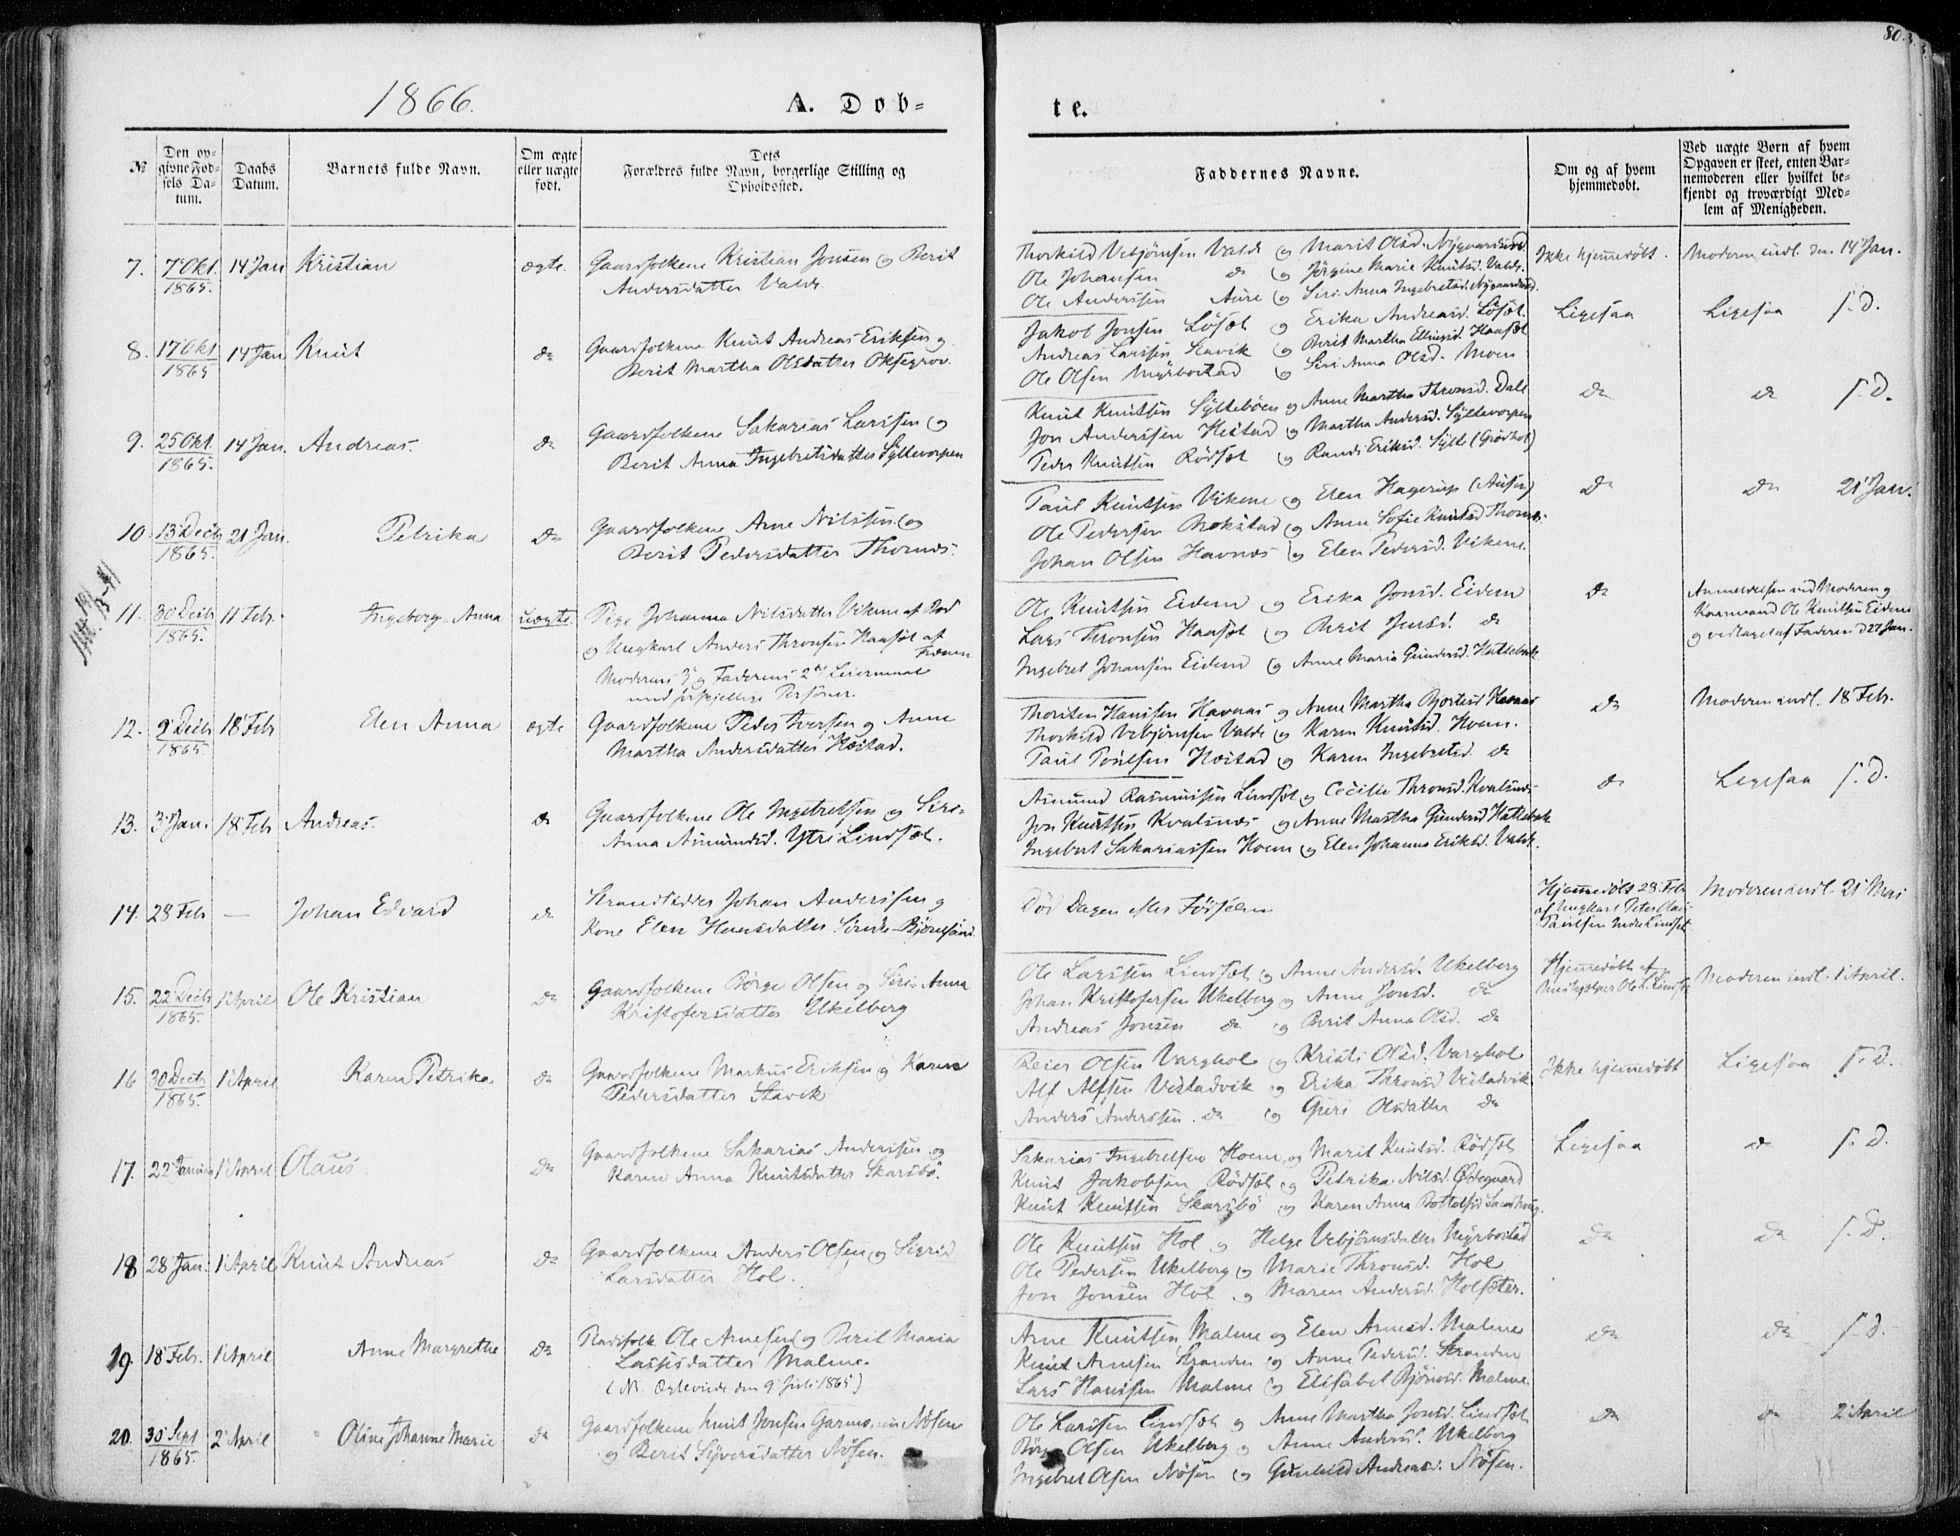 80.
1866.
A. Døb-
te.
№
Den opgivne Fødsels Datum.
Daabs Datum.
Barnets fulde Navn.
Om ægte eller uægte født.
Dets Forældres fulde Navn, borgerlige Stilling og Opholdssted.
Faddernes Navne.
Om og af hvem hjemmedøbt.
Ved uægte Børn af hvem Opgaven er skeet, enten Barnemoderen eller hvilket bekjendt og troværdigt Medlem af Menigheden.
7. 7 Okt. 1865. 14 Jan Kristian ægte. Gaardfolkene Kristian Jonsen og Berit
Andersdatter Valde
Thorkild Vebjørnsen Valde og Marit Olsd. Nygaardsud
Ole Johansen do og Jørgine Marie Knutsd. Valde.
Ole Anderssen Aure og Siri Anna Ingebretsd. Nygaardsud.
Ikke hjemmedøbt. Moderen indl. den 14 Jan.
8. 17 Okt 1865 14 Jan Knut do Gaardfolkene Knut Andreas Eriksen og
Berit Martha Olsdatter Oksegrov.
Jakob Jonsen Løsæt og Erika Andreasd. Løsæt.
Andreas Larssen Stavik og Berit Martha Ellingsd. Haasæt
Ole Olsen Myrbostad og Siri Anna Olsd. Moen
Ligesaa Ligesaa s. D.
9. 25 Okt. 1865. 14 Jan. Andreas. do Gaardfolkene Sakarias Larssen og
Berit Anna Ingebretsdatter Syltevorpen
Knut Knutsen Syltebøen og Anne Martha Thronsd. Dale
Jon Anderssen Hestad og Martha Andersd. Syltevorpen
Peder Knutsen Rødsæt og Randi Eriksd. Sylte (Grødhol)
do do s. D.
10. 13 Decb 1865. 21 Jan. Petrika do Gaardfolkene Arne Nilssen og
Berit Pedersdatter Thornes.
Paul Knutsen Vikene og Elen Hagerup
Ole Pedersen Mokstad og Anne Sofie Knutsd Thornes
Johan Olsen Havnæs og Elen Pedersd. Vikene.
do do 21 Jan.
11. 30 Decb 1865. 11 Feb. Ingeborg Anna uægte. Pige Johanna Nilsdatter Vikene af Bod
og Ungkarl Anders Thronsen Haasæt af
Frænen
Moderens 3 og Faderens 2det Leiermaal
med forskjellige Personer.
Ole Knutsen Eidem og Erika Jonsd. Eidem
Lars Thronsen Haasæt og Berit Jensd. do
Ingebret Johansen Eidem og Anne Maria Gundersd. Hattebak
do Anmeldelsen ved Moderen og
Kaarmand Ole Knutsen Eidem
og vedtaget af Faderen d 27 Jan.
12. 9 Decb 1865. 18 Feb Elen Anna ægte Gaardfolkene Peder Iversen og Anne
Martha Andersdatter Hæstad.
Thorsten Hanssen Havnæs og Anne Martha Bjørlsd Havnæs
Thorkild Vebjørnsen Valde og Karen Knutsd. Hoem.
Paul Poulsen Hæstad og Karen Ingebretsd. do
do Moderen indl. 18 Feb.
13. 3 Jan. 18 Feb Andreas. do Gaardfolkene Ole Ingebretsen og Siri
Anna Asmundsd. Ytre Lindsæt.
Asmund Rasmussen Lindsæt og Cecilie Thronsd. Kvalsnæs
Jon Knutsen Kvalsnæs og Anne Martha Gundersd Hattebak
Ingebert Sakariassen Hoem og Elen Johanna Eriksd. Valde.
do Ligesaa s. D.
14. 28 Feb — Johan Edvard do Strandsidder Johan Anderssen og
Kone Elen Hansdatter Søndre Bjørnsund
Død Dagen efter Fødselen
Hjemmedøbt 28 Feb
af Ungkarl Peter Olaus
Paulsen Indre Lindset
Moderen indl. 21 Mai
15. 22 Decb 1865. 1 April Ole Kristian do Gaardfolkene Børge Olsen og Siri Anna
Kristofersdatter Ukelberg
Ole Larssen Lindsæt og Anne Andersd. Ukelberg
Johan Kristofersen Ukelberg og Anne Jonsd. do
Andreas Jonsen do og Berit Anna Olsd. do
Hjemmedøbt af
Ole L. Lindset
Moderen indl. 1 April.
16 30 Decb 1865. 1 April Karen Petrika do Gaardfolkene Markus Eriksen og Karen
Pedersdatter Stavik
Reier Olsen Varghol og Kristi Olsd. Varghol
Alf Alfsen Vestadvik og Erika Thronsd Vestadvik
Anders Anderssen do og Guri Olsdatter do
Ikke hjemmedøbt Ligesaa s. D.
17. 22 Januar 1 April Olaus do Gaardfolkene Sakarias Anderssen og
Karen Anna Knutsdatter Skarsbø.
Sakarias Ingebretsen Hoem og Marit Knutsd. Rødsæt
Knut Jakobsen Rødsæt og Petrika Nilsd. Ødegaard
Knut Knutsen Skarsbø og Karen Anna Bottolfsd Sandhaug.
Ligesaa do s. D.
18 28 Jan. 1 April Knut Andreas do Gaardfolkene Anders Olsen og Sigrid
Larsdatter Hol.
Ole Knutsen Hol og Helge Vebjørnsdatter Myrbostad
Ole Pedersen Ukelberg og Marie Thronsd. Hol
Jon Jonsen Hol og Maren Andersd. Holsæter.
do do s. D.
19. 18 Feb. 1 April Anne Margrethe do Pladsfolk Ole Arnesen og Berit Maria
Larsdatter Malme.
(N. Ægteviede den 9 Juli 1865)
Arne Knutsen Malme og Elen Arnesd. Malme
Knud Arnesen Stranden og Anne Pedersd. Stranden
Lars Hanssen Malme og Elisabet Bjørnsd. Malme.
do do s. D.
20. 30 Sept 1865. 2 April Oline Johanne Marie do Gaardfolkene Knut Jonsen Nøsen
og Berit Syversdatter Nøsen.
Ole Larssen Lindsæt og Anne Martha Jonsd. Lindsæt
Børge Olsen Ukelberg og Anne Andersd. Ukelberg
Ingebret Olsen Nøsen og Gunhild Andreasd. Nøsen.
do do 2 April